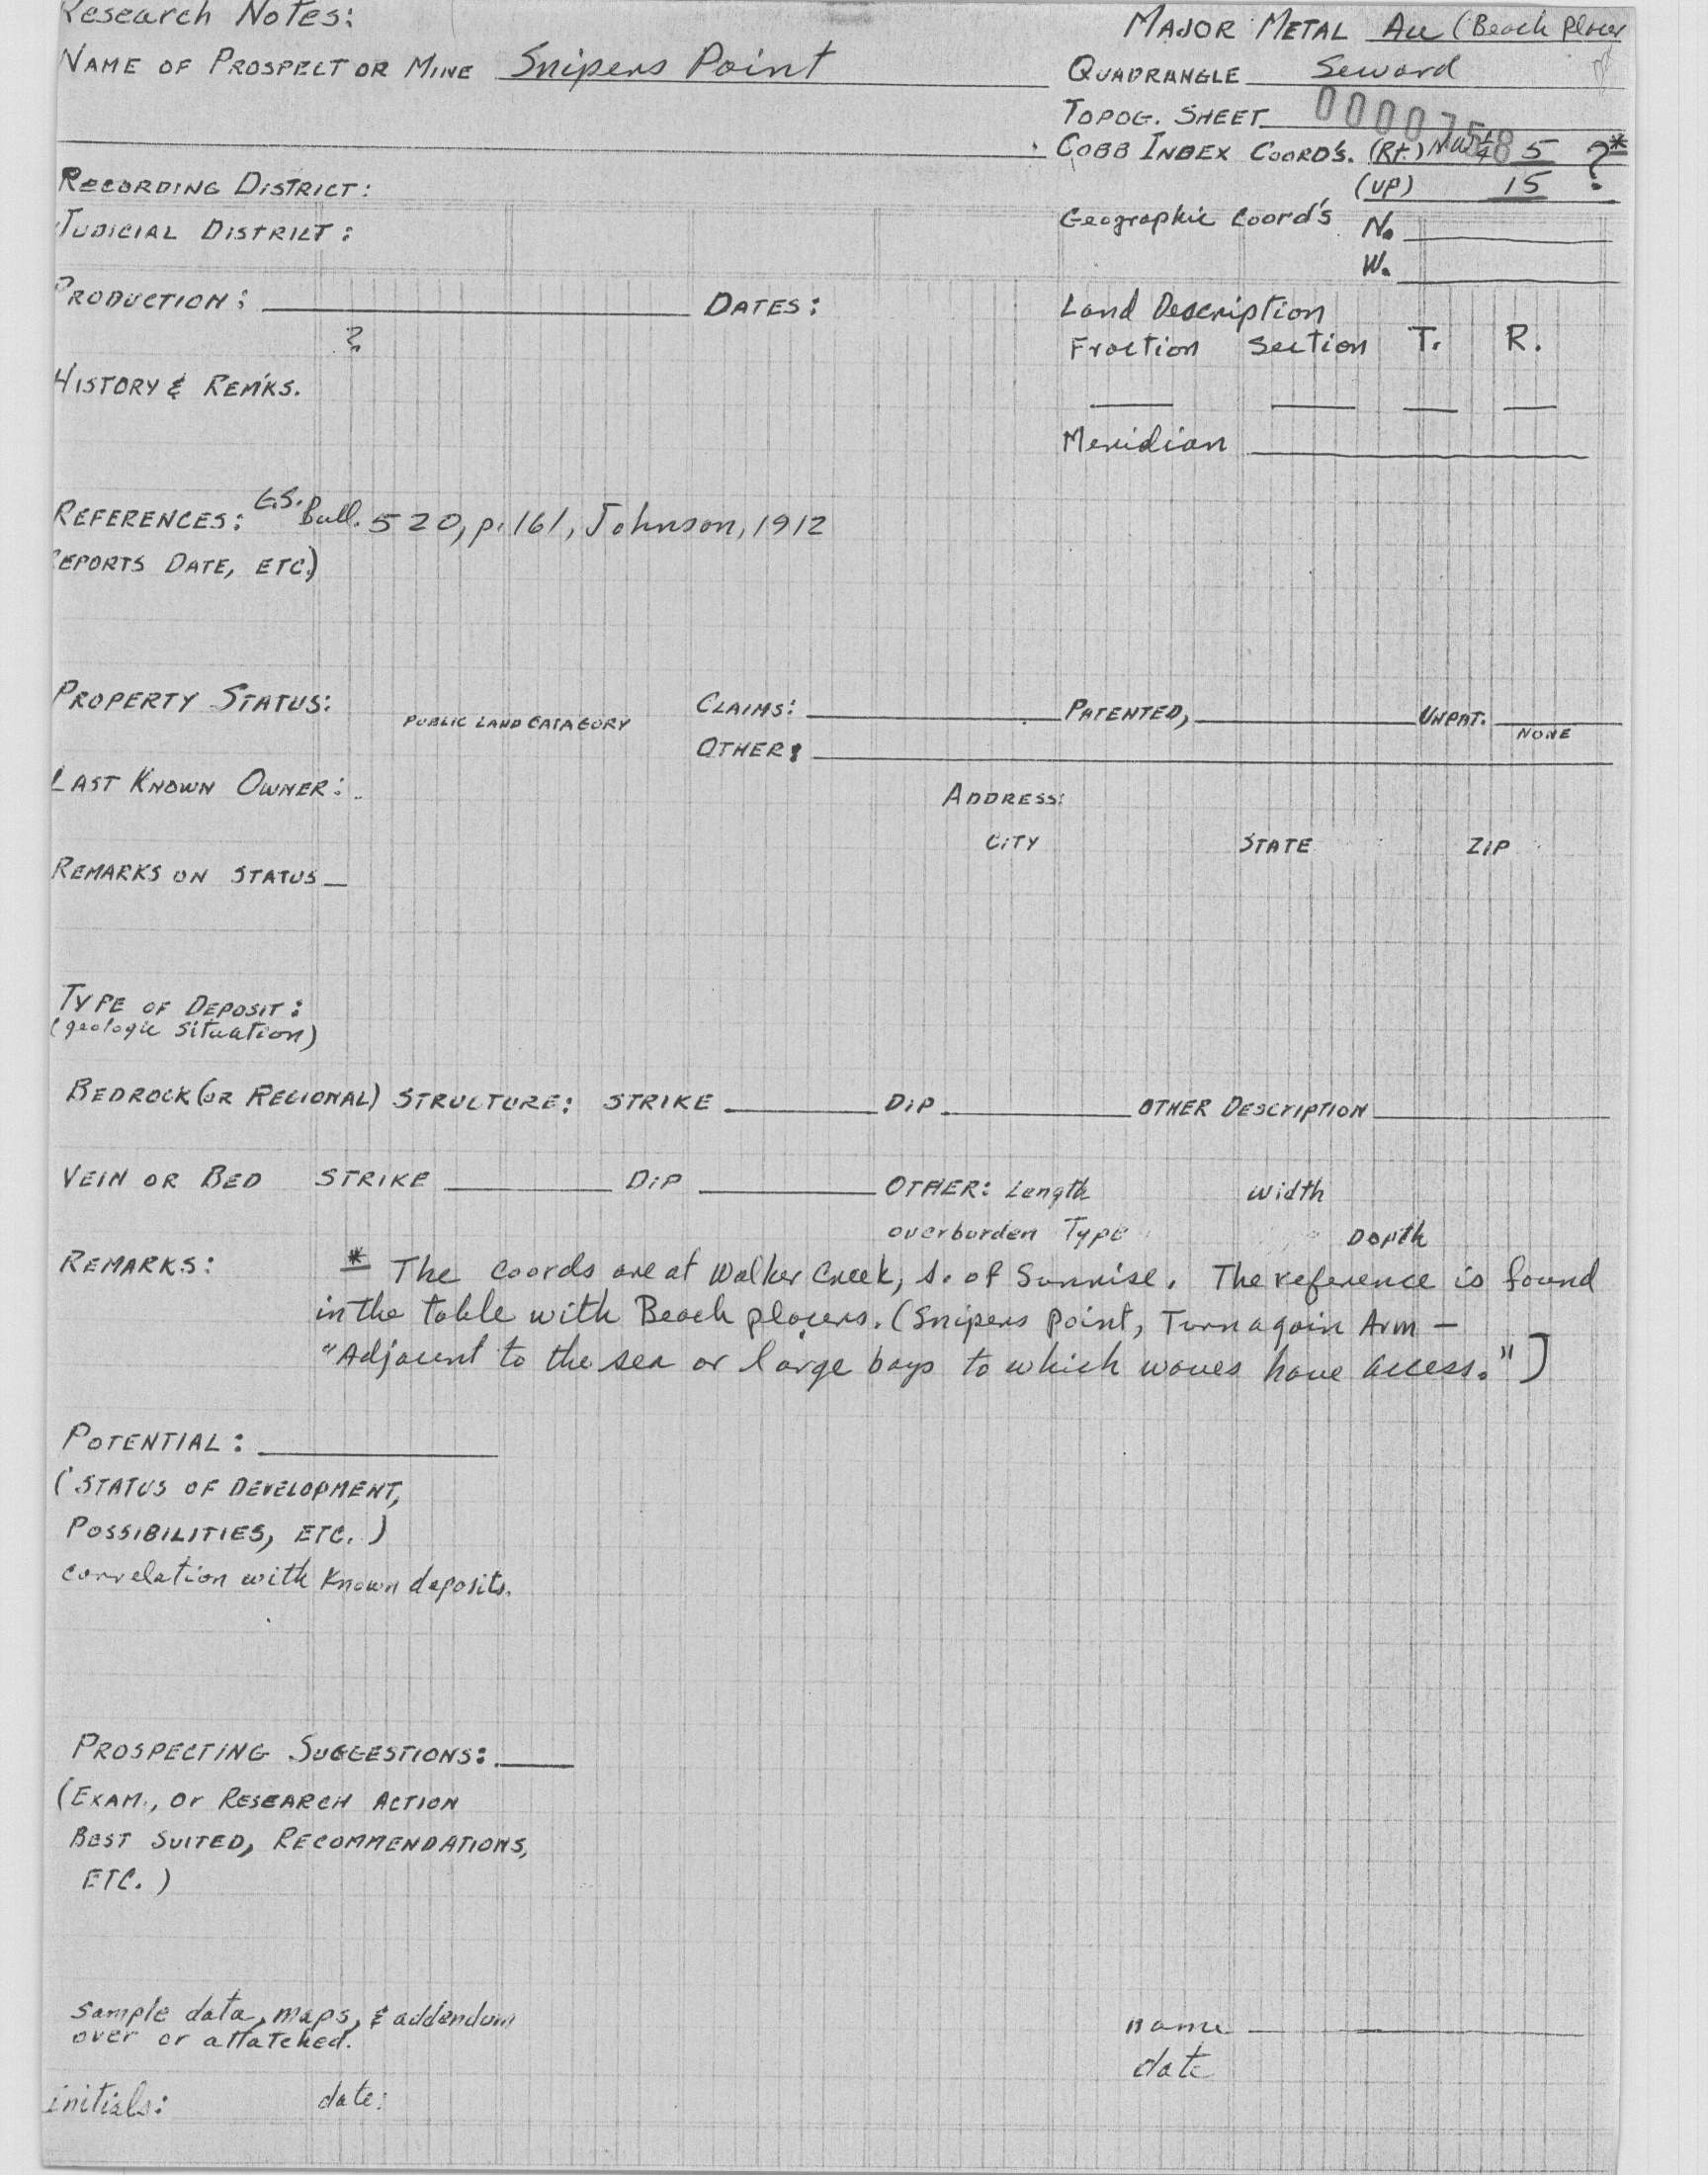 Research Notes:
MAJOR METAL Au (Beach placer
NAME OF PROSPECT OR MINE Snipers Point
QUADRANGLE Seward
TOPOG. SHEET
COBB INDEX COORD'S. (Rt.) 5 ?*
(UP) 15
RECORDING DISTRICT:
JUDICIAL DISTRICT:
Geographic Coord's N.
W.
PRODUCTION: DATES:
?
Land Description
Fraction Section T. R.
HISTORY & REM'KS.
Meridian
REFERENCES: G.S. Bull. 520, p. 161, Johnson, 1912
EPORTS DATE, ETC.)
PROPERTY STATUS: PUBLIC LAND CATAGORY CLAIMS: PATENTED, UNPAT. NONE
OTHER:
LAST KNOWN OWNER: ADDRESS:
CITY STATE ZIP
REMARKS ON STATUS
TYPE OF DEPOSIT:
(geologic situation)
BEDROCK (OR REGIONAL) STRUCTURE: STRIKE DIP OTHER DESCRIPTION
VEIN OR BED STRIKE DIP OTHER: Length width
overburden Type Depth
REMARKS: * The coords are at Walker Creek, s. of Sunrise. The reference is found
in the table with Beach placers. (Snipers Point, Turnagain Arm —
"Adjacent to the sea or large bays to which waves have access.")
POTENTIAL:
(STATUS OF DEVELOPMENT,
POSSIBILITIES, ETC.)
correlation with known deposits.
PROSPECTING SUGGESTIONS:
(EXAM., or RESEARCH ACTION
BEST SUITED, RECOMMENDATIONS,
ETC.)
sample data, maps, & addendum
over or attatched.
name
date
initials: date: